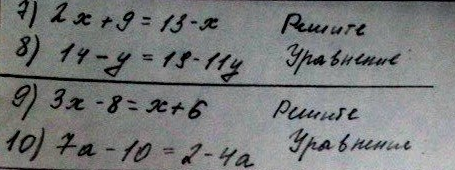 7) 2x + 9 = 13 - x Решите
8) 14 - y = 19 - 11y Уравнение
9) 3x - 8 = x + 6 Решите
10) 7a - 10 = 2 - 4a Уравнения